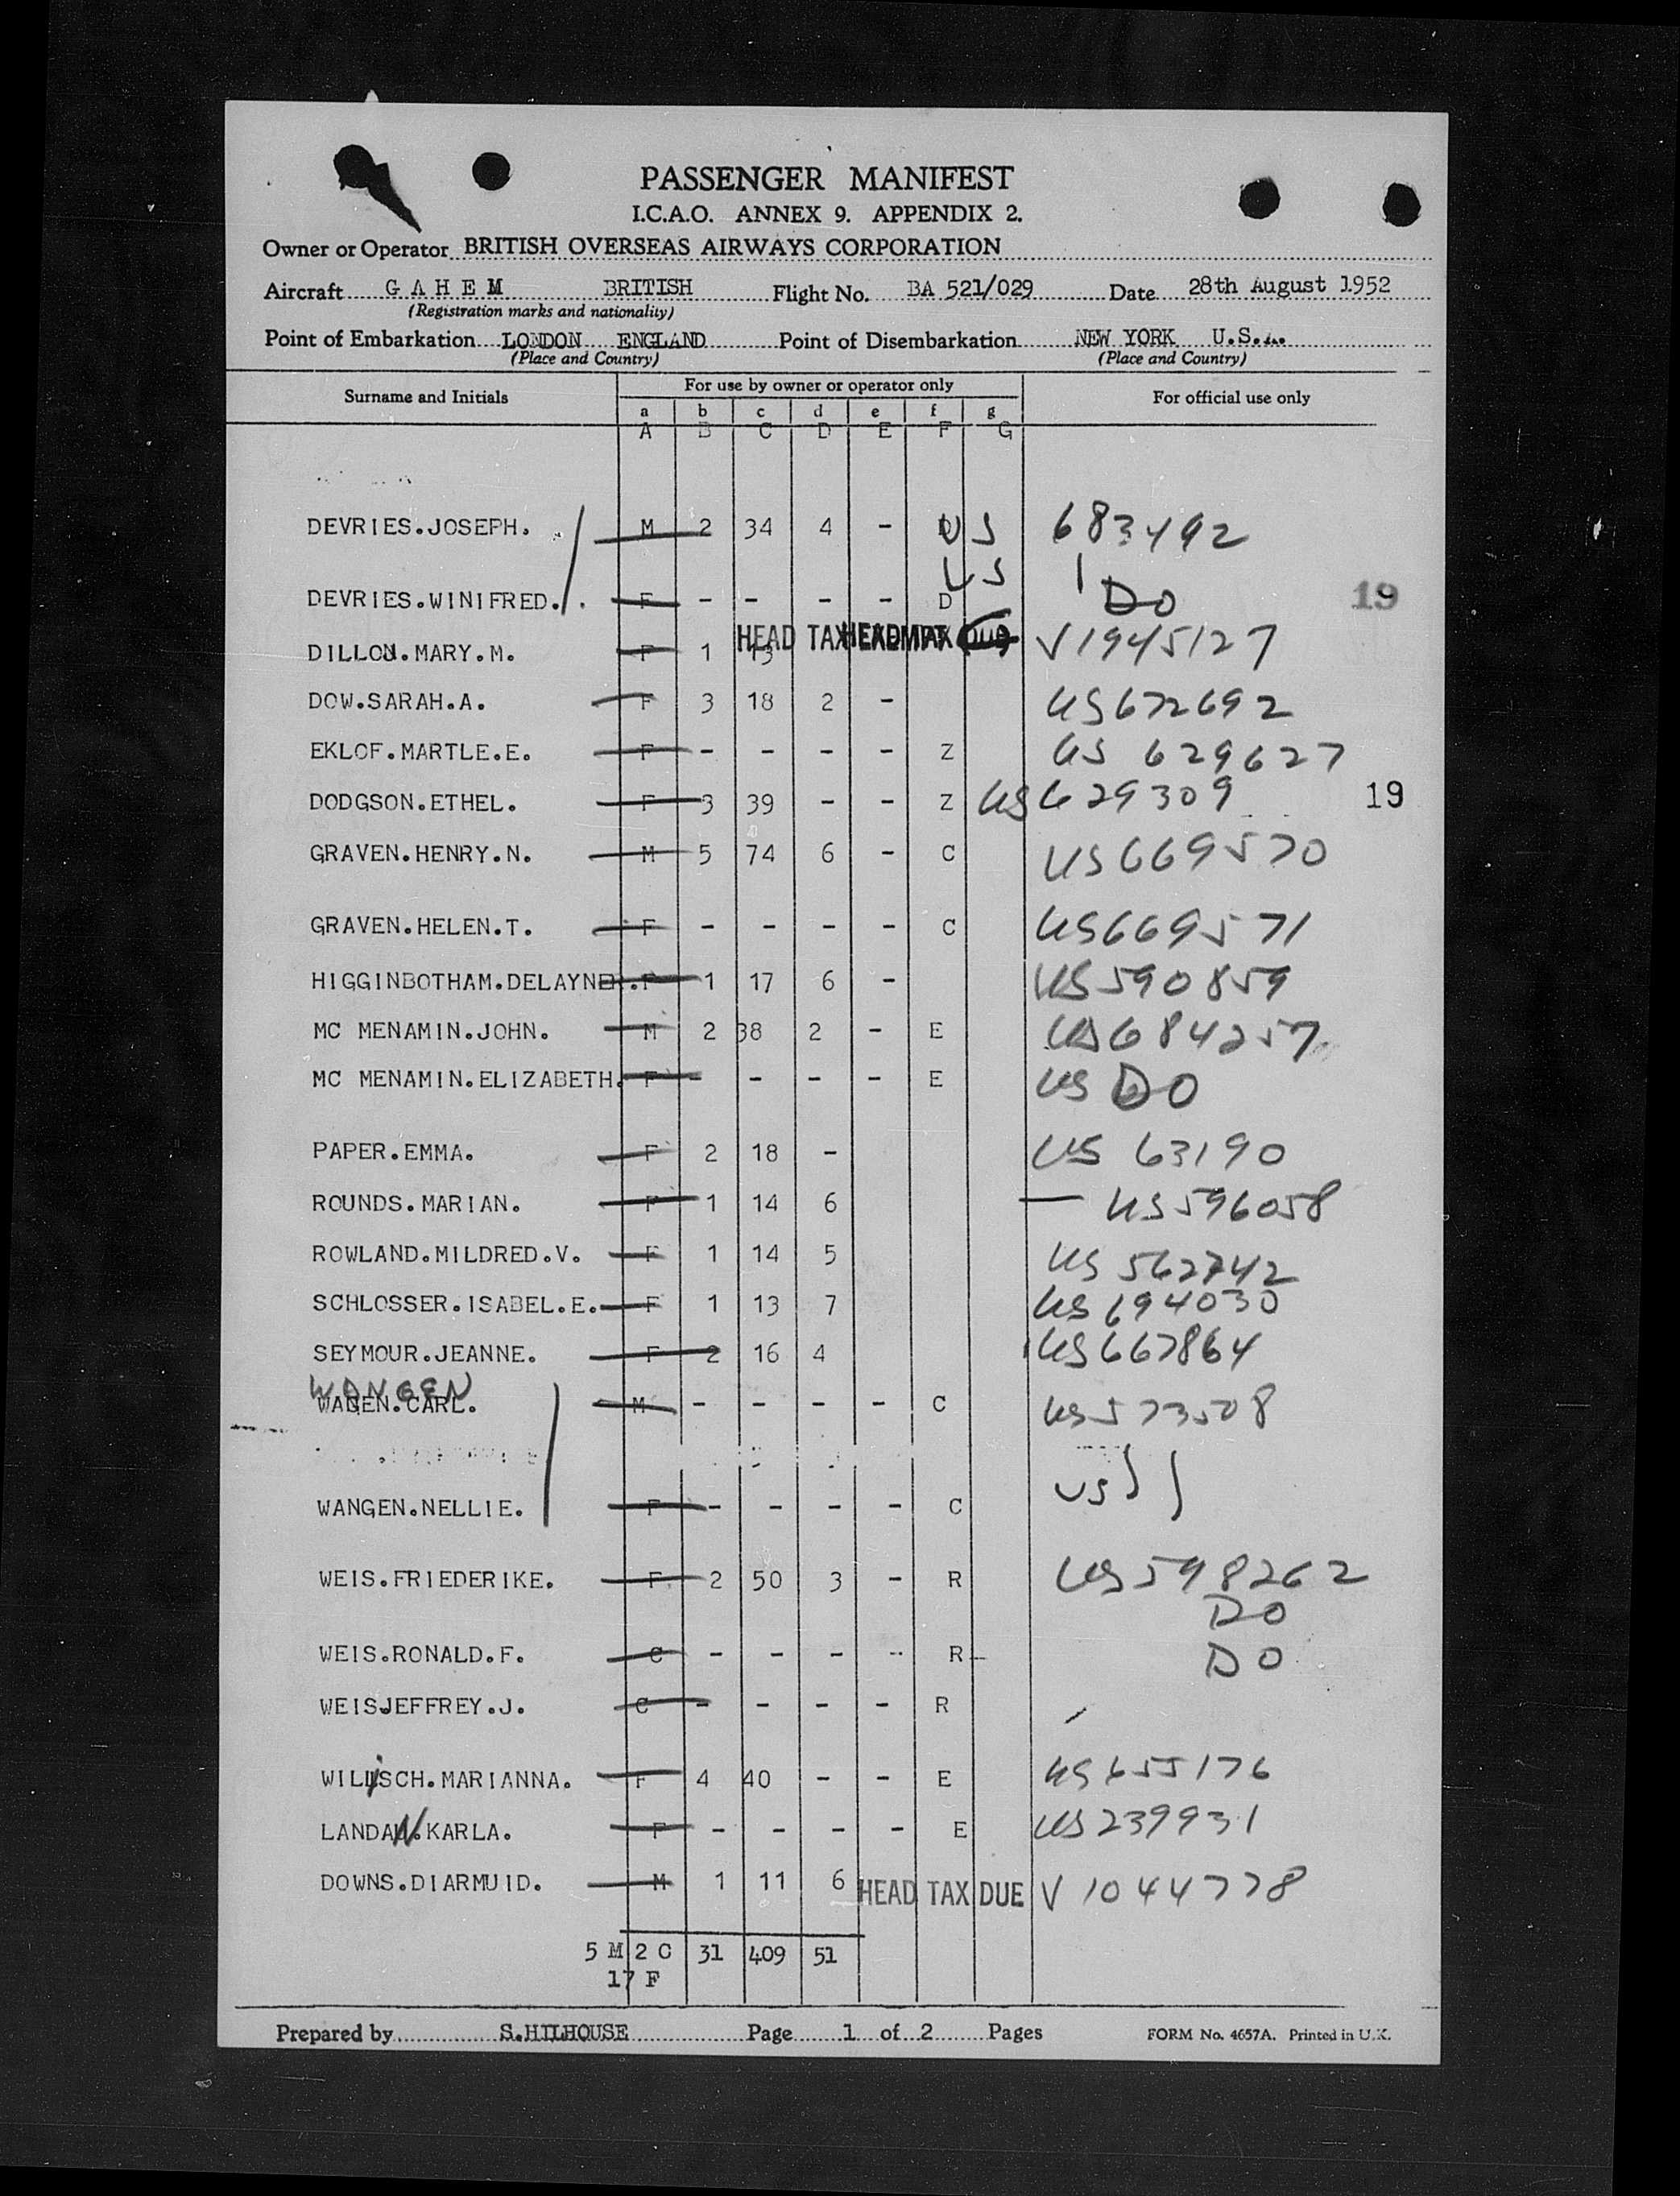 PASSENGER MANIFEST
I.C.A.O. ANNEX 9. APPENDIX 2.
Owner or Operator BRITISH OVERSEAS AIRWAYS CORPORATION
Aircraft G A H E M BRITISH Flight No. BA 521/029 Date 28th August 1952
(Registration marks and nationality)
Point of Embarkation LONDON ENGLAND Point of Disembarkation NEW YORK U.S.A.
(Place and Country) (Place and Country)
Surname and Initials For use by owner or operator only For official use only
a b c d e f g
A B C D E F G
DEVRIES.JOSEPH. M 2 34 4 - D US 683492
US
DEVRIES.WINIFRED. F - - - - D DO 19
DILLON.MARY.M. F 1 13 HEAD TAX V1945127
DOW.SARAH.A. F 3 18 2 - US672692
EKLOF.MARTLE.E. F - - - - Z US 629627
DODGSON.ETHEL. F 3 39 - - Z US629309 19
GRAVEN.HENRY.N. M 5 74 6 - C US669570
GRAVEN.HELEN.T. F - - - - C US669571
HIGGINBOTHAM.DELAYNE.F 1 17 6 - US590859
MC MENAMIN.JOHN. M 2 38 2 - E US684257
MC MENAMIN.ELIZABETH. F - - - - E US DO
PAPER.EMMA. F 2 18 - US 63190
ROUNDS.MARIAN. F 1 14 6 - US596058
ROWLAND.MILDRED.V. F 1 14 5 US 562742
SCHLOSSER.ISABEL.E. F 1 13 7 US 694030
SEYMOUR.JEANNE. F 2 16 4 US667864
WANGEN
WAGEN.CARL. M - - - - C US573508
WANGEN.NELLIE. F - - - - C US
WEIS.FRIEDERIKE. F 2 50 3 - R US598262
DO
WEIS.RONALD.F. C - - - - R DO
WEISJEFFREY.J. C - - - - R
WILLISCH.MARIANNA. F 4 40 - - E US655176
LANDAU.KARLA. F - - - - E US239931
DOWNS.DIARMUID. M 1 11 6 HEAD TAX DUE V 1044778
5 M 2 C 31 409 51
17 F
Prepared by S.HILHOUSE Page 1 of 2 Pages FORM No. 4657A. Printed in U.K.